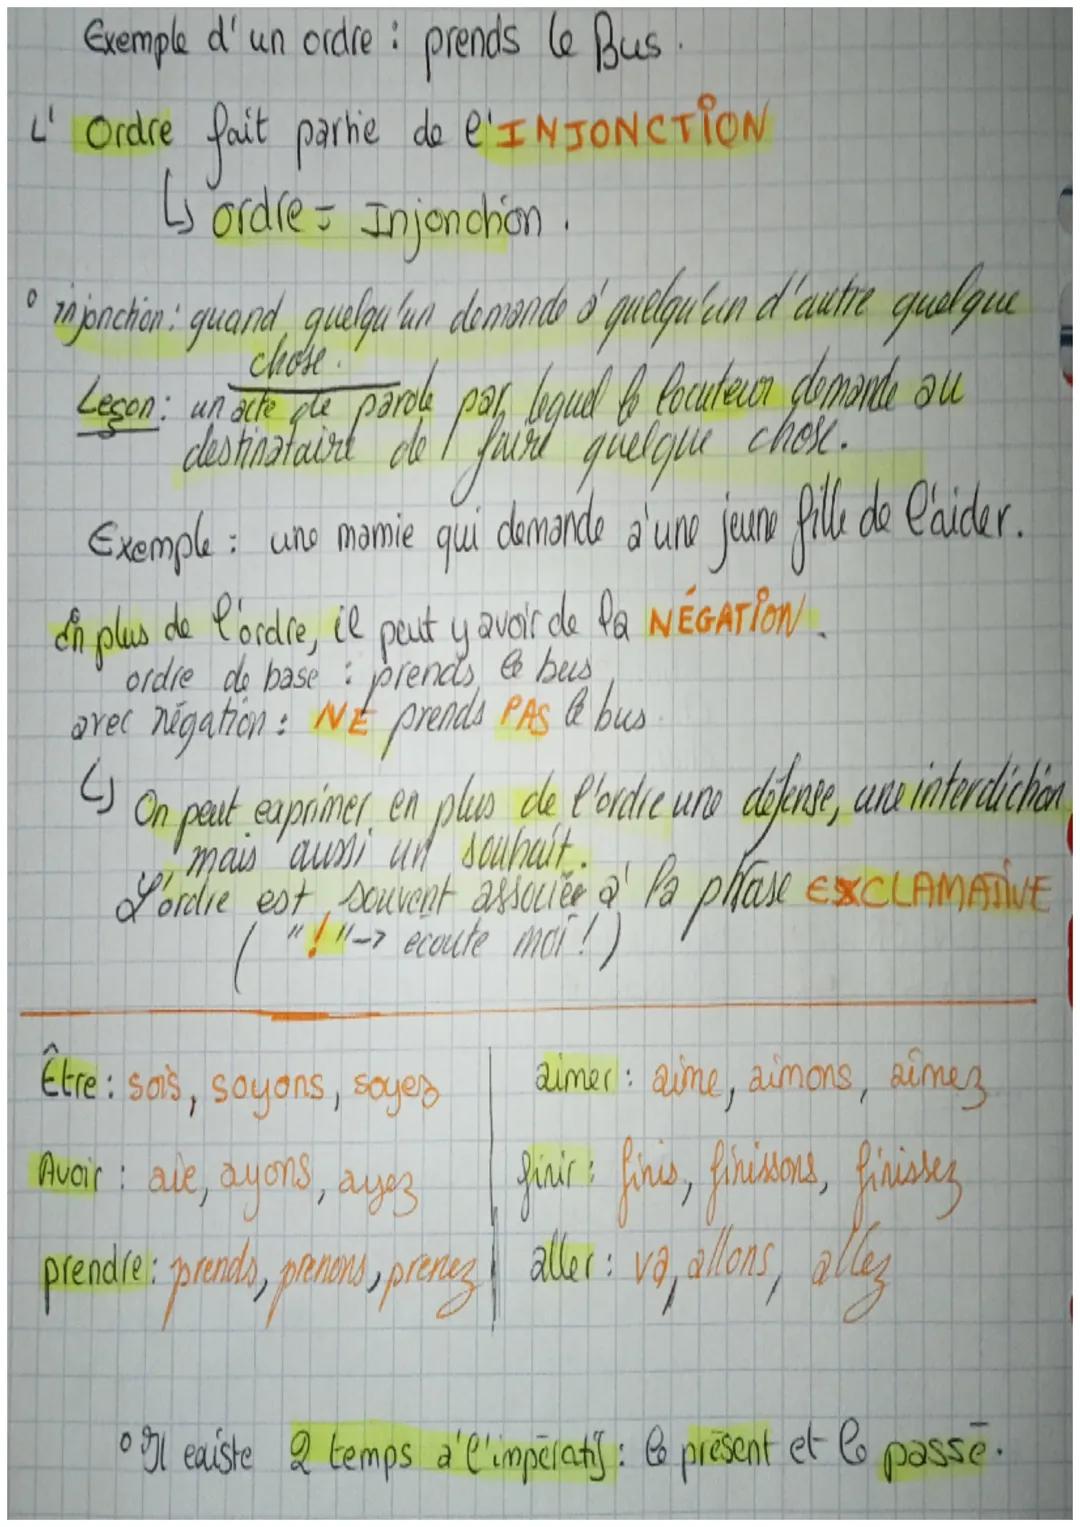 Exemple d'un ordre : prends le Bus.
L'Ordre fait partie de l'INJONCTION
↳ ordre = Injonction.
° injonction : quand quelqu'un demande à quelqu'un d'autre quelque
chose.
Leçon : un acte de parole par lequel le locuteur demande au
destinataire de faire quelque chose.
Exemple : une mamie qui demande à une jeune fille de l'aider.
En plus de l'ordre, il peut y avoir de la NÉGATION.
ordre de base : prends le bus
avec négation : NE prends PAS le bus
↳ On peut exprimer en plus de l'ordre une défense, une interdiction
, mais aussi un souhait.
L'ordre est souvent associée à la phrase EXCLAMATIVE
( "!" -> écoute moi ! )
Être : sois, soyons, soyez
aimer : aime, aimons, aimez
Avoir : aie, ayons, ayez
finir : finis, finissons, finissez
prendre : prends, prenons, prenez
aller : va, allons, allez
° Il existe 2 temps à l'impératif : le présent et le passé.